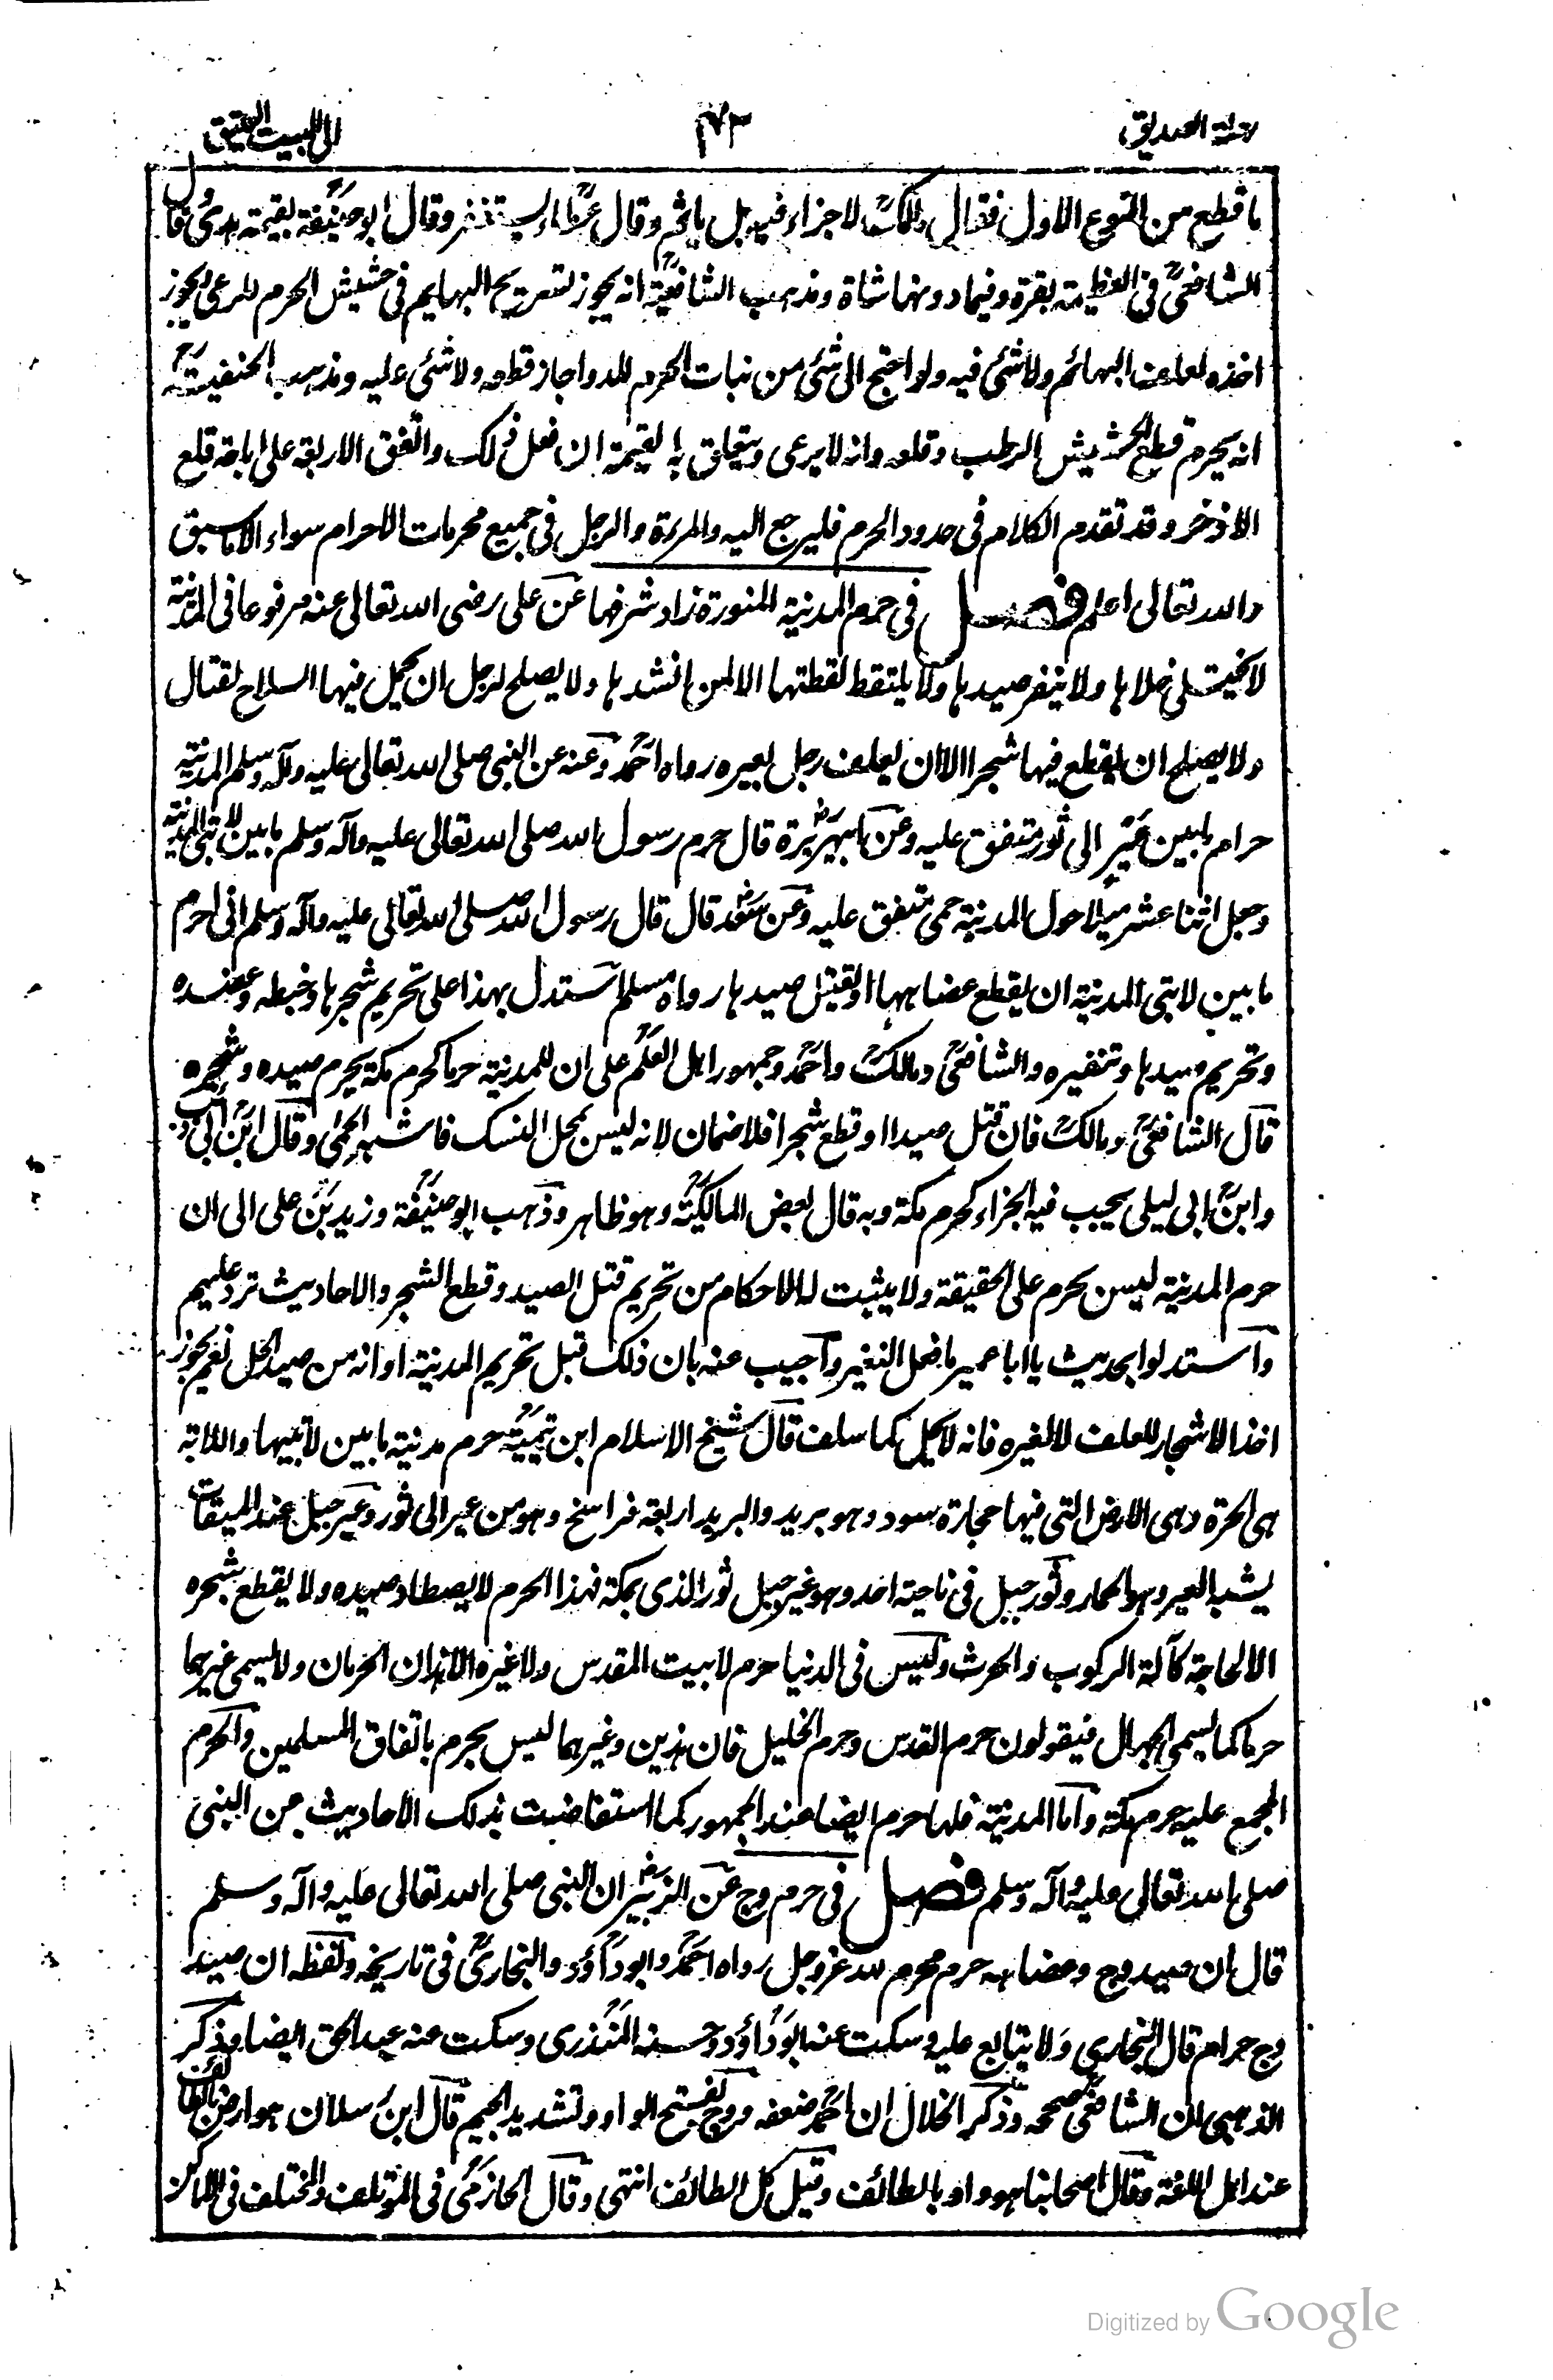 رحلة الصديق ٧٣ الى البيت العتيق
ما قطع من النوع الاول فقال مالك لا جزاء فيه بل ياثم وقال عطاء يستغفر وقال ابو حنيفة بقيمته هدى قال
الشافعي في العظيمة بقرة وفيما دونها شاة ومذهب الشافعية انه يجوز تسريح البهايم في حشيش الحرم للرعى ويجوز
اخذه لعلف البهائم ولا شئ فيه ولو احتج الى شئ من نبات الحرم للدوا جاز قطعه ولا شئ عليه ومذهب الحنفية
انه يحرم قطع الحشيش الرطب وقلعه وانه لا يرعى ويتعلق به القيمة ان فعل ذلك واتفق الاربعة على اباحة قلع
الاذخر وقد تقدم الكلام في حدود الحرم فليرجع اليه والمرءة والرجل في جميع محرمات الاحرام سواء الا ما سبق
والله تعالى اعلم فصل في حرم المدينة المنورة زاد شرفها عن على رضى الله تعالى عنه مرفوعا في المدينة
لا يختلى خلاها ولا ينفر صيدها ولا يلتقط لقطتها الا لمن انشدها ولا يصلح لرجل ان يحمل فيها السلاح لقتال
ولا يصلح ان يقطع فيها شجرا الا ان يعلف رجل بعيره رواه احمد وعنه عن النبي صلى الله تعالى عليه وآله وسلم المدينة
حرام ما بين عير الى ثور متفق عليه وعن ابي هريرة قال حرم رسول الله صلى الله تعالى عليه وآله وسلم ما بين لابتى المدينة
وجعل اثنا عشر ميلا حول المدينة حمى متفق عليه وعن سعد قال قال رسول الله صلى الله تعالى عليه وآله وسلم انى احرم
ما بين لابتى المدينة ان يقطع عضاهها او يقتل صيدها رواه مسلم استدل بهذا على تحريم شجرها وخبطه وعضده
وتحريم صيدها وتنفيره والشافعي ومالك واحمد وجمهور اهل العلم على ان للمدينة حرما كحرم مكة يحرم صيده وشجره
قال الشافعي ومالك فان قتل صيدا او قطع شجرا فلا ضمان لانه ليس بمحل النسك فاشبه الحمى وقال ابن ابى ذئب
وابن ابى ليلى يجب فيه الجزاء كحرم مكة وبه قال بعض المالكية وهو ظاهر وذهب ابو حنيفة وزيد بن على الى ان
حرم المدينة ليس بحرم على الحقيقة ولا يثبت له الاحكام من تحريم قتل الصيد وقطع الشجر والاحاديث ترد عليهم
واستدلوا بحديث يا ابا عمير ما فعل النغير واجيب عنه بان ذلك قبل تحريم المدينة او انه من صيد الحل نعم يجوز
اخذ الاشجار للعلف لا لغيره فانه لا يحل كما سلف قال شيخ الاسلام ابن تيمية حرم مدينة ما بين لابتيها واللابة
هى الحرة وهى الارض التى فيها حجارة سود وهو بريد والبريد اربعة فراسخ وهو من عير الى ثور وعير جبل عند الميقات
يشبه العير وهو الحمار وثور جبل في ناحية احد وهو غير جبل ثور الذى بمكة فهذا الحرم لا يصطاد صيده ولا يقطع شجره
الا لحاجة كآلة الركوب والحرث وليس في الدنيا حرم لا بيت المقدس ولا غيره الا هذان الحرمان ولا يسمى غيرهما
حرما كما يسمى الجهال فيقولون حرم القدس وحرم الخليل فان هذين وغيرهما ليس بحرم باتفاق المسلمين والحرم
المجمع عليه حرم مكة واما المدينة فلها حرم ايضا عند الجمهور كما استفاضت بذلك الاحاديث عن النبى
صلى الله تعالى عليه وآله وسلم فصل في حرم وج عن الزبير ان النبى صلى الله تعالى عليه وآله وسلم
قال ان صيد وج وعضاهه حرم محرم لله عز وجل رواه احمد وابو داؤد والبخارى في تاريخه ولفظه ان صيد
وج حرام قال البخارى ولا يتابع عليه وسكت عنه ابو داؤد وحسنه المنذرى وسكت عنه عبد الحق ايضا وذكر
الذهبى ان الشافعي صححه وذكر الخلال ان احمد ضعفه ووج بفتح الواو وتشديد الجيم قال ابن رسلان هو ارض بالطائف
عند اهل اللغة وقال اصحابنا هو واد بالطائف وقيل كل الطائف انتهى وقال الحازمى في المؤتلف والمختلف في الاماكن
Digitized by Google